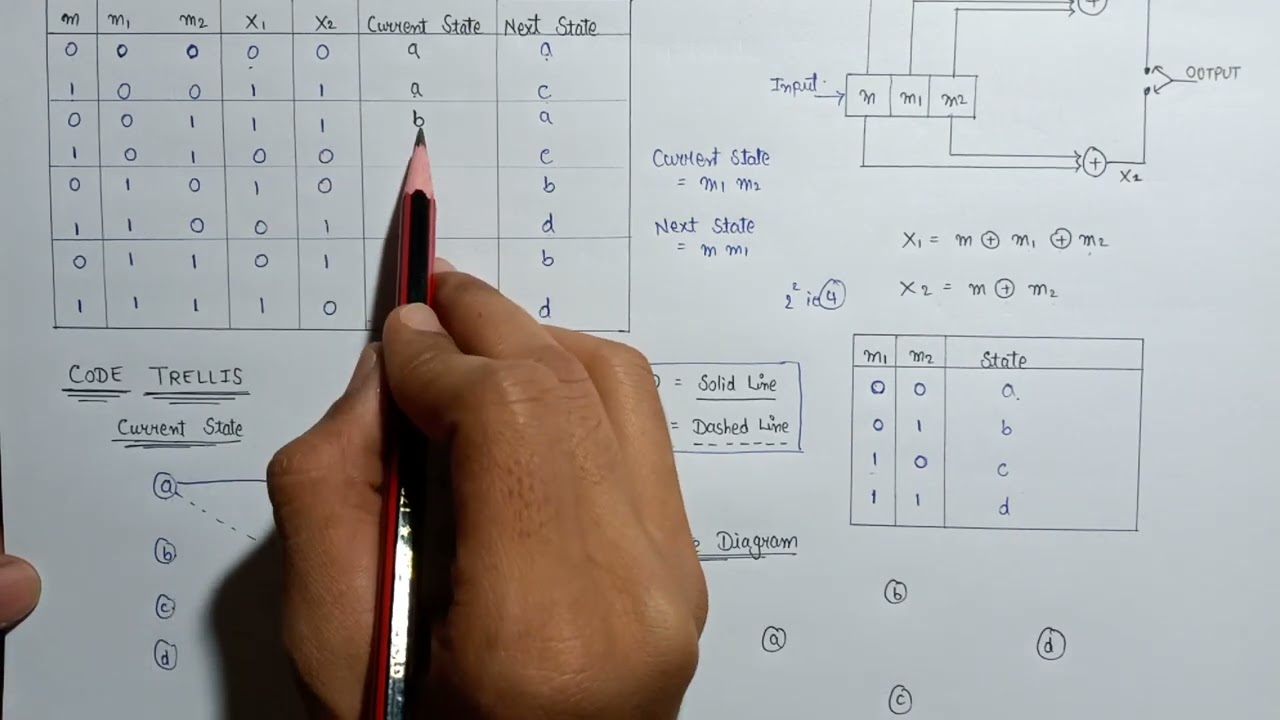 m m1 m2 X1 X2 Current State Next State
0 0 0 0 0 a a
1 0 0 1 1 a c
0 0 1 1 1 b a
1 0 1 0 0 c
0 1 0 1 0 b
1 1 0 0 1 d
0 1 1 0 1 b
1 1 1 1 0 d
+
OUTPUT
Input
m m1 m2
+
X2
Current State
= m1 m2
Next State
= m m1
2² ie 4
X1 = m ⊕ m1 ⊕ m2
X2 = m ⊕ m2
m1 m2 State
0 0 a
0 1 b
1 0 c
1 1 d
CODE TRELLIS
Current State
a
b
c
d
= Solid Line
= Dashed Line
Diagram
b
a
d
c